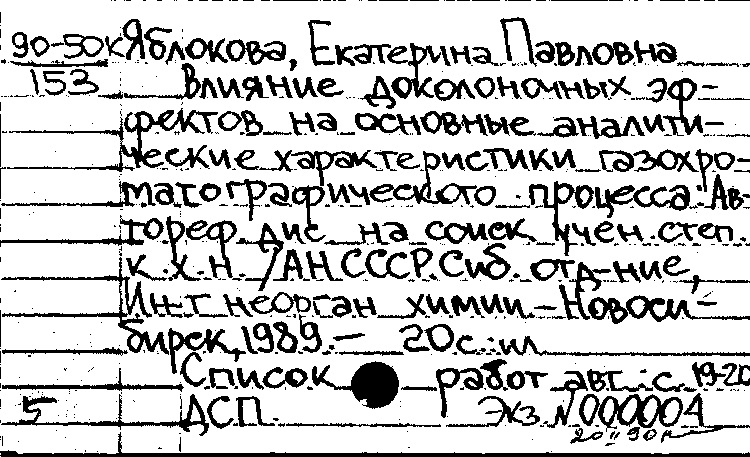 90-50к Яблокова, Екатерина Павловна
153 Влияние доколоночных эф-
фектов на основные аналити-
ческие характеристики газохро-
матографического процесса: Ав-
тореф. дис. на соиск. учен. степ.
к.х.н. /АН СССР. Сиб. отд-ние,
Ин-т неорган химии. – Новоси-
бирск, 1989. – 20 с.: ил
Список работ авт.: с. 19-20
5 ДСП. Экз. N 000004
20 II 90